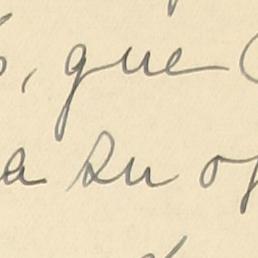 , que
a su